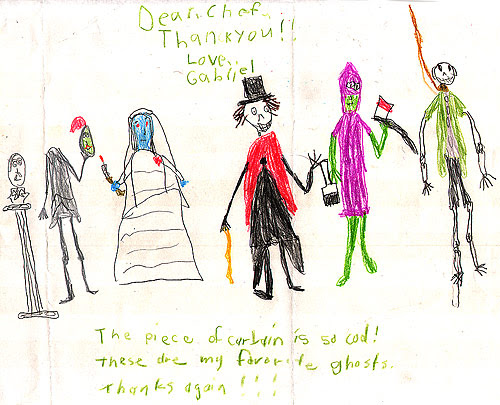 Dear Chef,
Thankyou!!
Love,
Gabriel
The piece of curtain is so cool!
These are my favorite ghosts.
Thanks again!!!